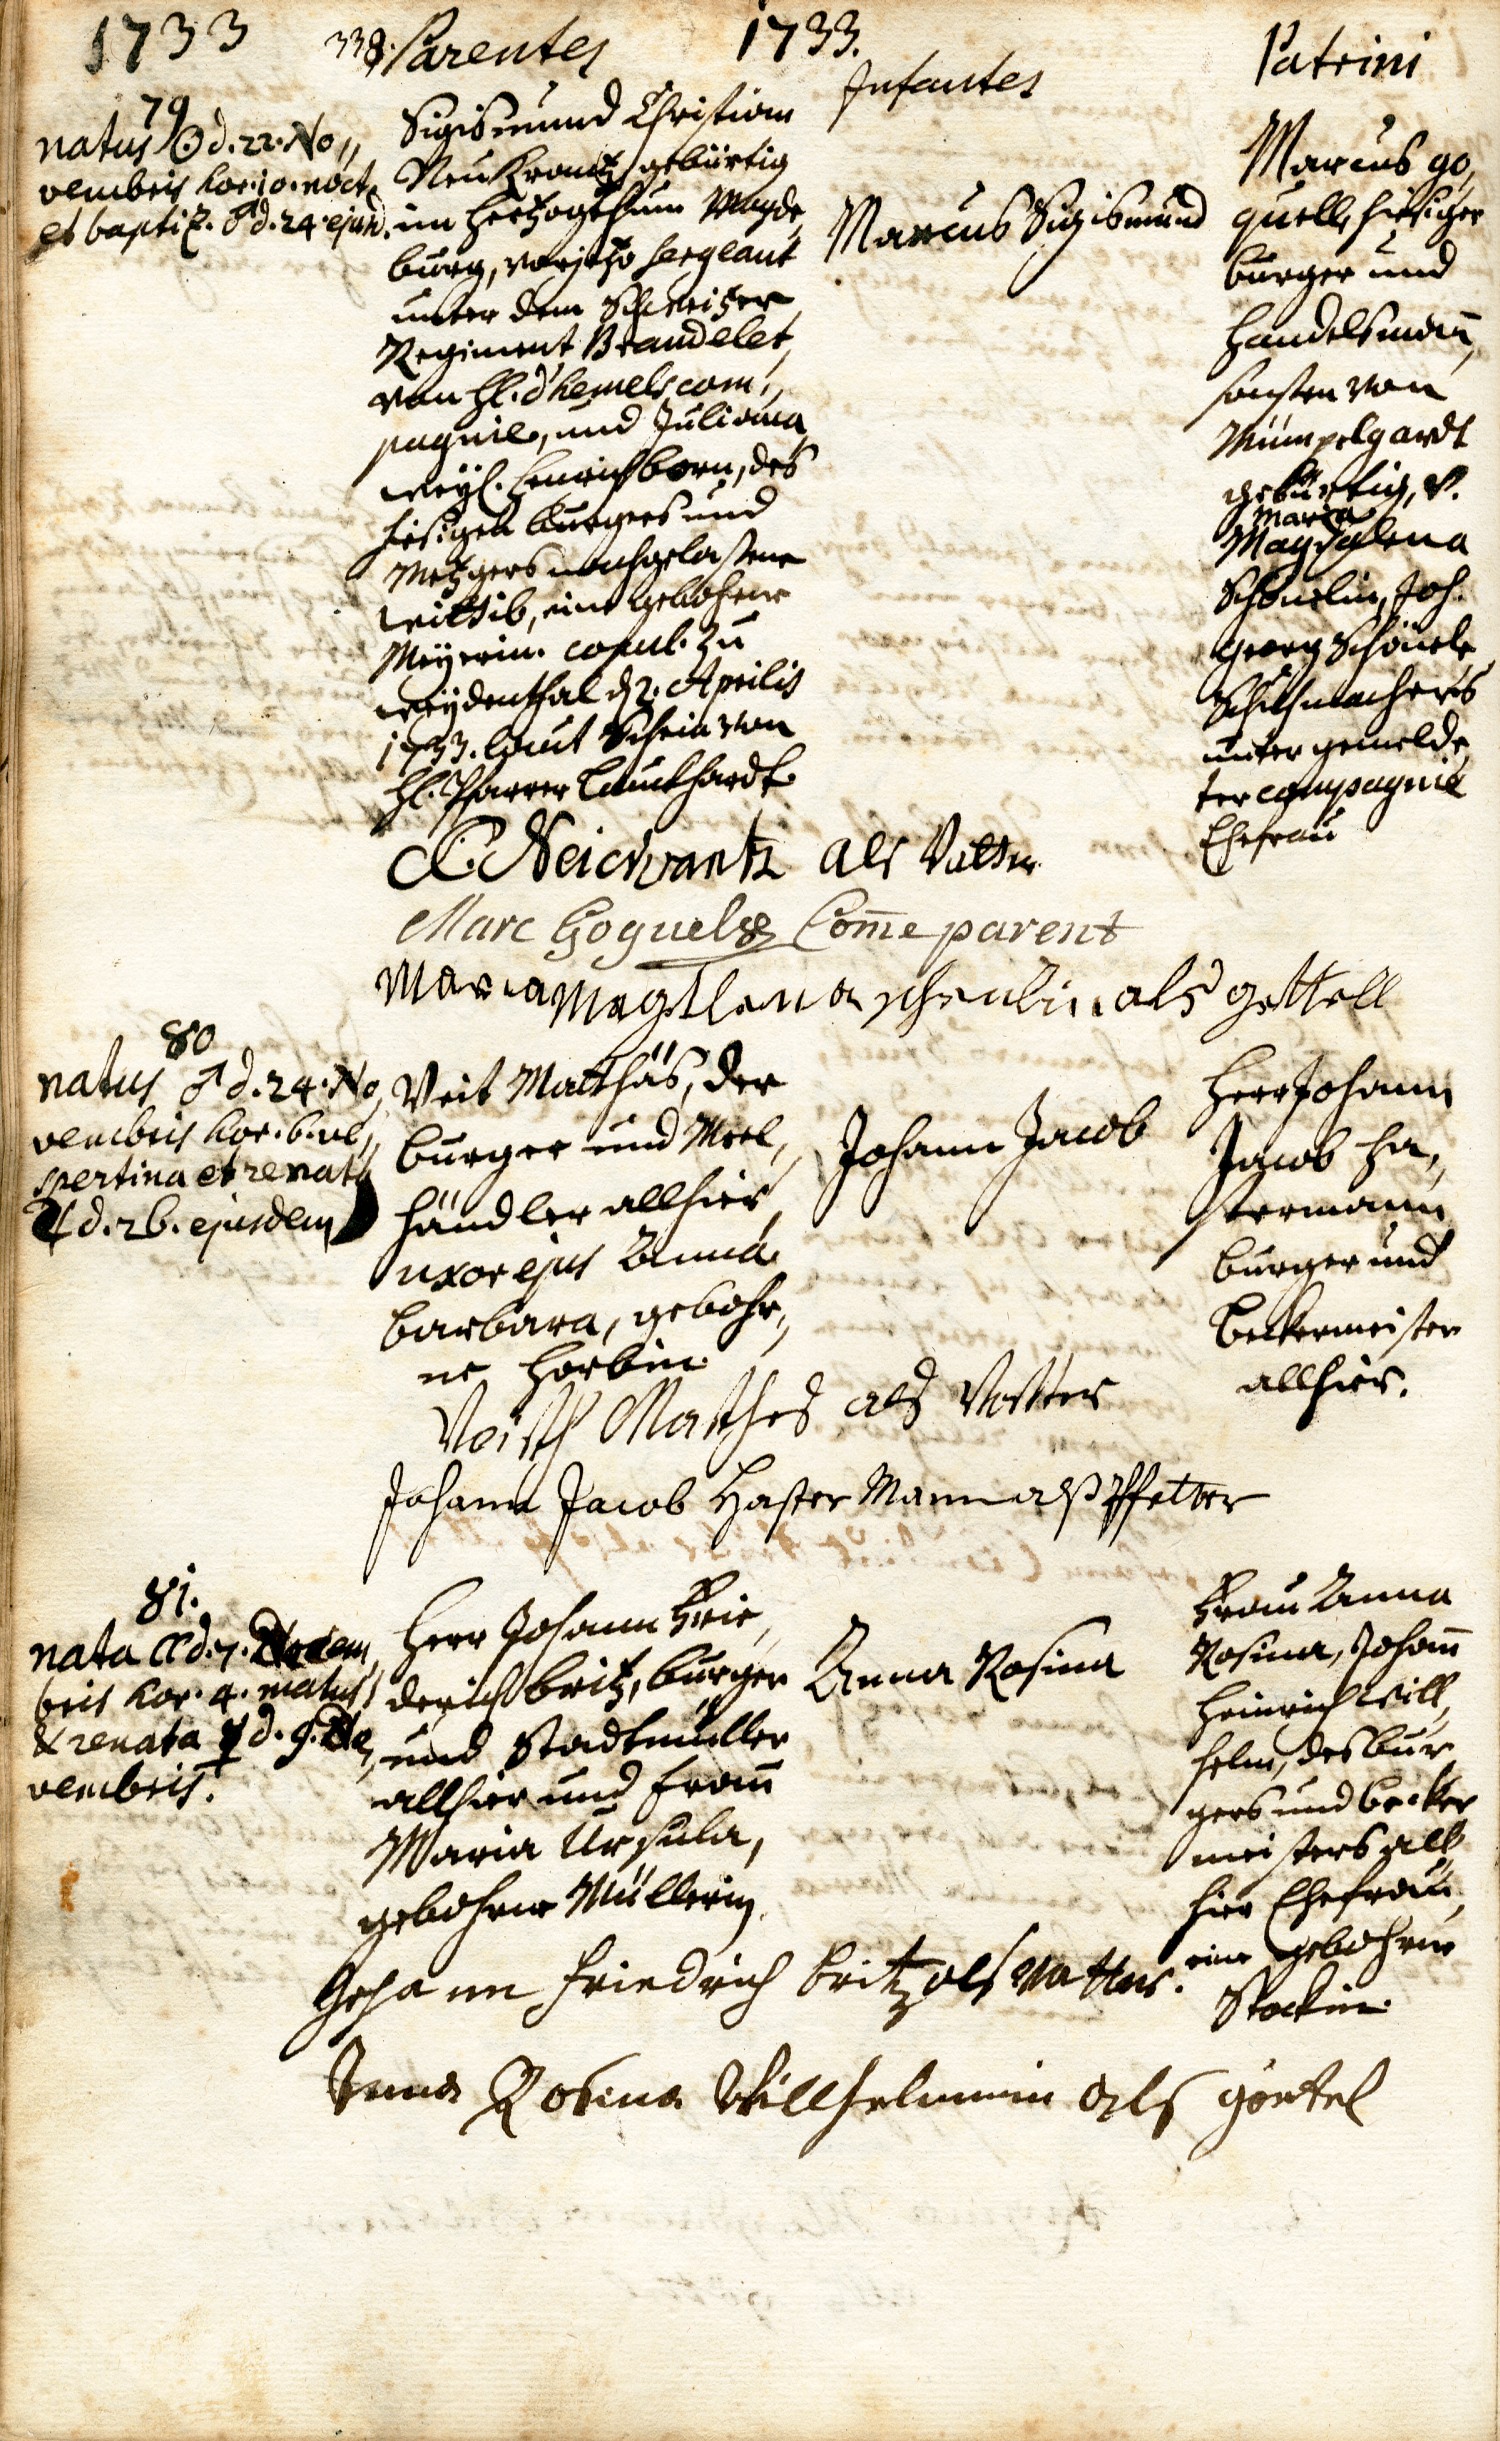 1733
338.
Parentes
1733.
Infantes
Patrini
79
natus ☉ d. 22. No,,
vembris hor. 10. noct.
et baptiz. ♂ d. 24. ejusd.
Sigismund Christian
Neükrantz, gebürtig
im Hertzogthum Magde,
burg, vorjetzo sergeant
unter dem Schweitzer
Regiment Brandelet,
von H. d'hemels com,,
pagnie, und Juliana
weyl. Henrich born, des
hiesigen burgers und
Metzgers nachgelaßene
wittib, eine gebohrne
Meyerin. copul. zu
Weydenthal d. 2. Aprilis
1733. laut Schein von
H. Pfarrer Lauckhardt.
Marcus Sigismund
Marcus go,
quell, hiesiger
burger und
Handelsmañ,
sonsten von
Mümpelgardt
gebürtig, v.
Maria
Magdalena
Schönelin, Joh.
Georg Schönele
Schuhmachers
unter gemelde,
ter compagnie
Ehefrau
C. Neickrantz als Vatter
Marc Goguel Com̃e parent
Maria Magtlena schenlin als gettell
80
natus ♂ d. 24. No,
vembris hor. 6. ve,
spertina et renat9
♃ d. 26. ejusdem
Veit Matthäs, der
burger und Meel,,
händler allhier,
uxor ejus Anna
Barbara, gebohr,,
ne Horbin.
Johann Jacob
Herr Johann
Jacob Ha,,
stermann
burger und
Beckermeister
allhier.
Veith Mathes als Vatter
Johann Jacob Haster Mann alß Pfetter
81.
nata ☾ d. 7.
bris hor. 4. matut.
& renata ☿ d. 9.
vembris.
Herr Johann Frie,
derich britz, burger
und Stadtmüller
allhier und Fraũ
Maria Ursula,
gebohrne Müllerin.
Anna Rosina
Frau Anna
Rosina, Johañ
Heinrich Will,
helm, des bur,
gers und becker
meisters all,
hier Ehefrau,
eine gebohrne
Stockin.
Johann Friedrich britz als Vatter.
Anna Rosina Willhelmmin als göttel